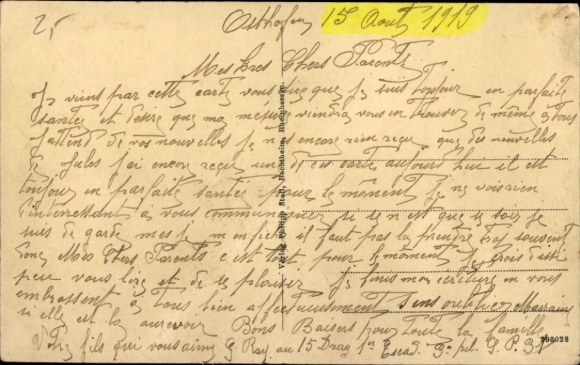 25
Osthofen 15 Aout 1919
Mes tres Chers Parents
Je viens par cette carte vous dire que je suis toujour en parfaite
santee et desire que ma missive viendra vous trouver de même à tous
j'attend de vos nouvelles je n'es encore rien reçu que des nouvelles
de jules j'ai encore reçu une de ses carte aujourd hui il est
toujour en parfaite santee pour le moment je ne vois rien
d'interressant à vous communiquer si se n'est que se soir je
suis de garde mes je m'en fiche il faut pas la prendre trop souvent
donc Mes Chers Parents c'est tout pour le moment je crois d'ici
peu vous lire et de se plaisir je finis mon écriture en vous
embrassent à tous bien affectueusement sens oublier
si elle est la aurevoir Bons Baisers pour toute la famille
Votre fils qui vous aime G Ray au 15 Drag 1er Escad. 3e pel. S. P. 91
Verlag Philipp Stoll, Bechtheim, Rheinhessen.
208028